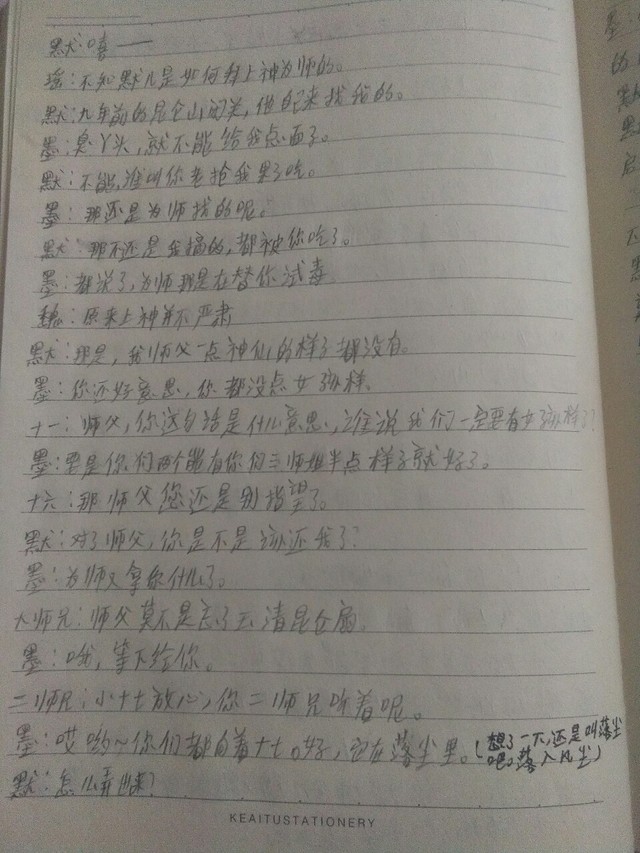 默：嘻——
瑶：不知默儿是如何拜上神为师的。
默：九年前的昆仑山闭关，他自己来找我的。
墨：臭丫头，就不能给我点面子。
默：不能，谁叫你老抢我果子吃。
墨：那还是为师找的呢。
默：那不还是我摘的，都被你吃了。
墨：都说了，为师那是在替你试毒
穗：原来上神并不严肃
默：那是，我师父一点神仙的样子都没有。
墨：你还好意思，你都没点女孩样。
十一：师父，你这句话是什么意思，谁说我们一定要有女孩样子？
墨：要是你们两个能有你们三师姐半点样子就好了。
十六：那师父您还是别指望了。
默：对了师父，你是不是该还我了？
墨：为师又拿你什么了。
大师兄：师父莫不是忘了玉清昆仑扇。
墨：哦，等下给你。
二师兄：小十七放心，你二师兄听着呢。
墨：哎哟～你们都向着十七。好，它在落尘里。（想了一下，还是叫落尘吧。落入凡尘）
默：怎么弄出来？
KEAITUSTATIONERY